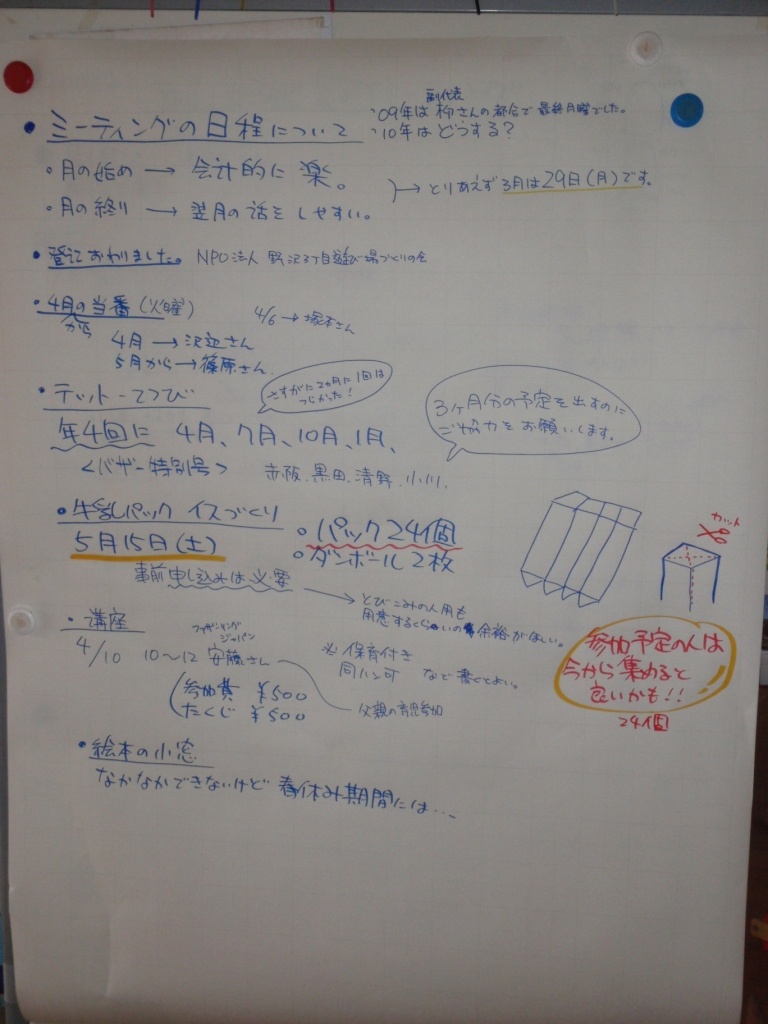 副代表
・'09年は柳さんの都合で最終月曜でした。
・ミーティングの日程について
・'10年はどうする？
・月の始め → 会計的に楽。
・月の終り → 翌月の話をしやすい。
→ とりあえず3月は29日(月)です。
・登記おわりました。 NPO法人 野沢3丁目遊び場づくりの会
・4月の当番(火曜)
から
4/6→塚本さん
4月→沢辺さん
5月から→篠原さん
さすがに2ヵ月に1回は
つらかった！
・テットーてつび
3ヶ月分の予定を出すのに
ご協力をお願いします。
年4回に 4月、7月、10月、1月、
<バザー特別号> 赤阪、黒田、清野、小川、
・牛乳パック イスづくり
5月15日(土)
・パック24個
・ダンボール2枚
カット
事前申し込みは必要
→ とびこみの人用も
用意するくらいの余裕がほしい。
・講座
ファザーリング
ジャパン
4/10 10〜12 安藤さん
※保育付き
同ハン可 など書くとよい。
参加費 ¥500
たくじ ¥500
父親の育児参加
参加予定の人は
今から集めると
良いかも！！
24個
・絵本の小窓
なかなかできないけど 春休み期間には…